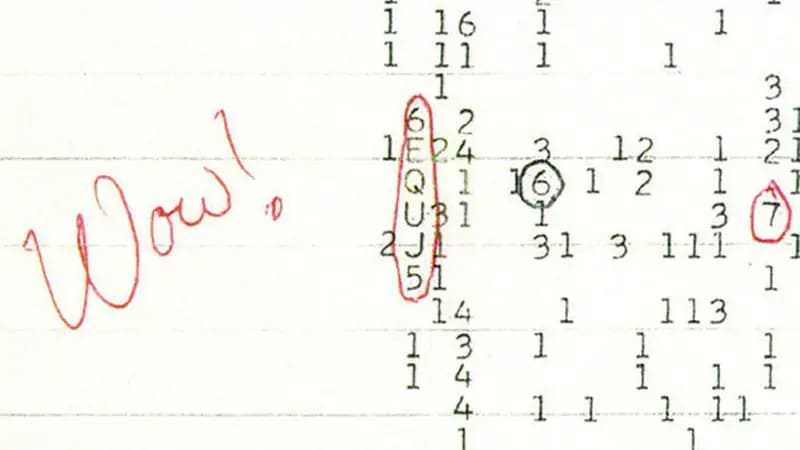 1 16 1 1
1 11 1 1
1 3
6 2 31
1E24 3 12 1 21
Wow!
Q 1 16 1 2 1 1
U31 1 3 7
2J1 31 3 111 1
51 1
14 1 113
1 3 1 1 1
1 4 1 1 1
4 1 1 1 11
1 1